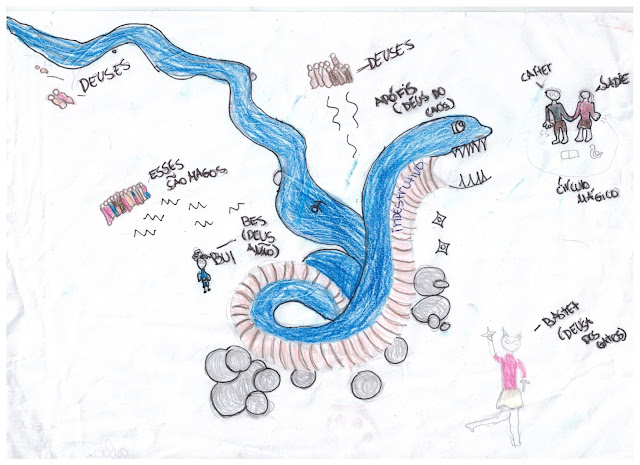 DEUSES
DEUSES
APÓFIS
(DEUS DO
CAOS)
CARTER
SADIE
CÍRCULO
MÁGICO
ESSES
SÃO MAGOS
BES
(DEUS
ANÃO)
BU!
indestrutivo
BASTET
(DEUSA
DOS
GATOS)